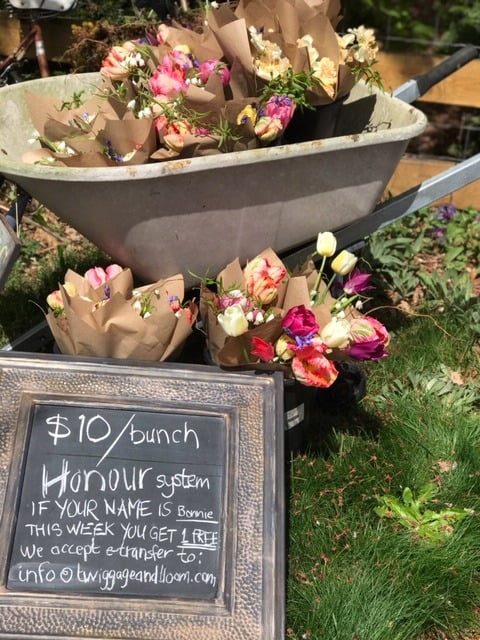 $10/bunch
Honour system
IF YOUR NAME IS Bonnie
THIS WEEK YOU GET 1 FREE
We accept e-transfer to:
info@twiggageandbloom.com